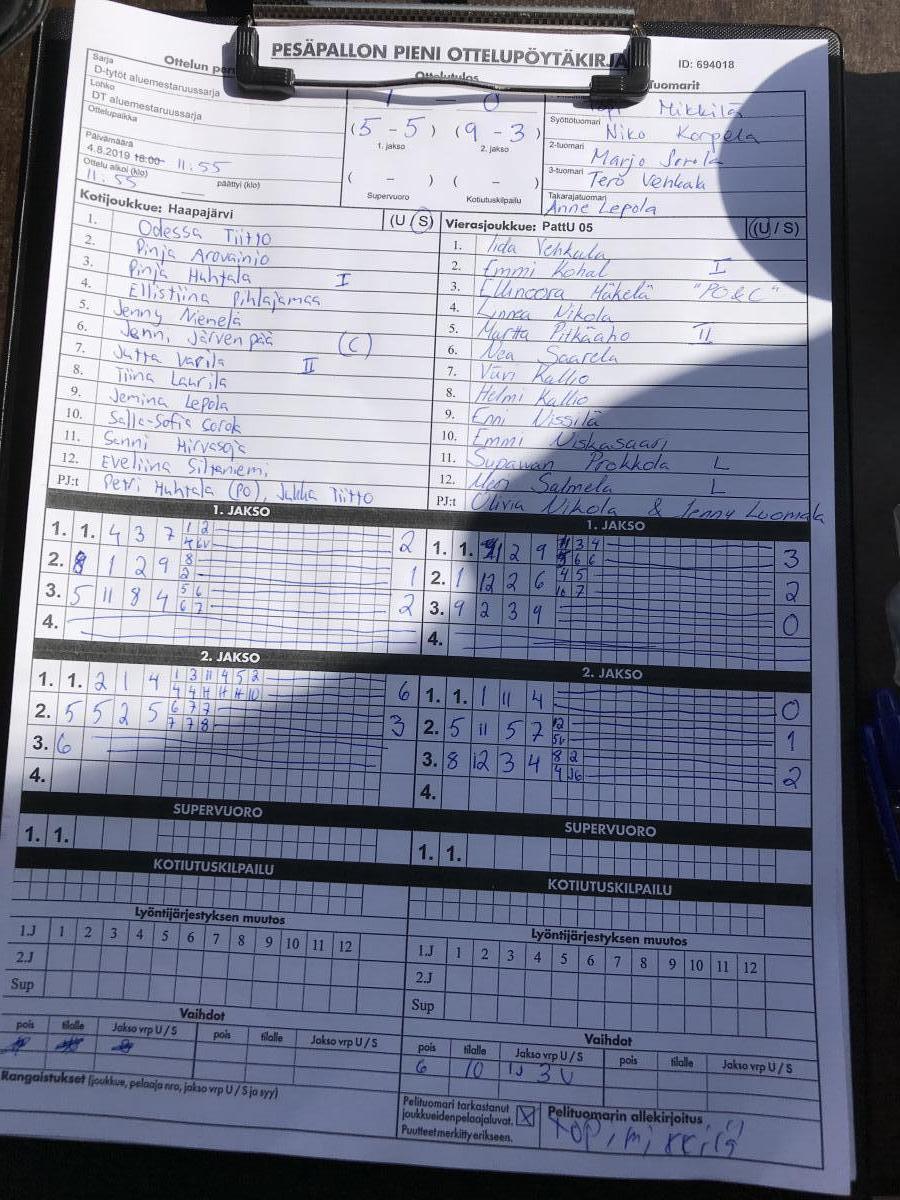 PESÄPALLON PIENI OTTELUPÖYTÄKIRJA
ID: 694018
Sarja
D-tytöt aluemestaruussarja
Lohko
DT aluemestaruussarja
Ottelupaikka
Päivämäärä
4.8.2019 18:00 11:55
Ottelu alkoi (klo) päättyi (klo)
11:55
Ottelutulos
1 - 0
(5 - 5) (9 - 3)
1. jakso 2. jakso
( - ) ( - )
Supervuoro Kotiutuskilpailu
Tuomarit
Topi Mikkilä
Syöttötuomari
Niko Korpela
2-tuomari
Marjo Sorola
3-tuomari
Tero Vehkala
Takarajatuomari
Anne Lepola
Kotijoukkue: Haapajärvi (U / S)
1. Odessa Tiitto
2. Pinja Arovainio
3. Pinja Huhtala I
4. Ellistiina Pihlajamaa
5. Jenny Nienelä
6. Jenni Järvenpää (C)
7. Jutta Varila II
8. Tiina Laurila
9. Jemina Lepola
10. Salla-Sofia
11. Sanni Hirvasoja
12. Eveliina Siltaniemi
PJ:t Petri Huhtala (PO), Jukka Tiitto
Vierasjoukkue: PattU 05 (U / S)
1. Iida Vehkala
2. Emmi Kohal I
3. Ellinoora Mäkelä "PO&C"
4. Linnea Nikola
5. Martta Pitkäaho II
6. Nea Saarela
7. Vüvi Kallio
8. Helmi Kallio
9. Enni Nissilä
10. Emmi Niskasaari
11. Supawan Prokkola L
12. Salmela L
PJ:t Olivia Nikola & Jenny Luomala
1. JAKSO
1. 1. 4 3 7 1 2 2
2. 8 1 2 9 8 2 1
3. 5 11 8 4 5 6 6 7 2
4.
1. JAKSO
1. 1. 2 9 3 4 6 6 3
2. 1 12 2 6 4 5 10 7 2
3. 9 2 3 9 0
4.
2. JAKSO
1. 1. 2 1 4 1 3 11 4 5 2 6
2. 5 5 2 5 6 7 7 7 7 8 3
3. 6
4.
2. JAKSO
1. 1. 1 11 4 0
2. 5 11 5 7 12 1
3. 8 12 3 4 8 2 2
4.
SUPERVUORO
1. 1.
SUPERVUORO
1. 1.
KOTIUTUSKILPAILU
KOTIUTUSKILPAILU
Lyöntijärjestyksen muutos
1.J 1 2 3 4 5 6 7 8 9 10 11 12
2.J
Sup
Lyöntijärjestyksen muutos
1.J 1 2 3 4 5 6 7 8 9 10 11 12
2.J
Sup
Vaihdot
pois tilalle Jakso vrp U / S pois tilalle Jakso vrp U / S
Vaihdot
pois tilalle Jakso vrp U / S pois tilalle Jakso vrp U / S
6 10 1J 3 U
Rangaistukset (joukkue, pelaaja nro, jakso vrp U / S ja syy)
Pelituomari tarkastanut
joukkueidenpelaajaluvat. X
Puutteet merkitty erikseen.
Pelituomarin allekirjoitus
Topi Mikkilä